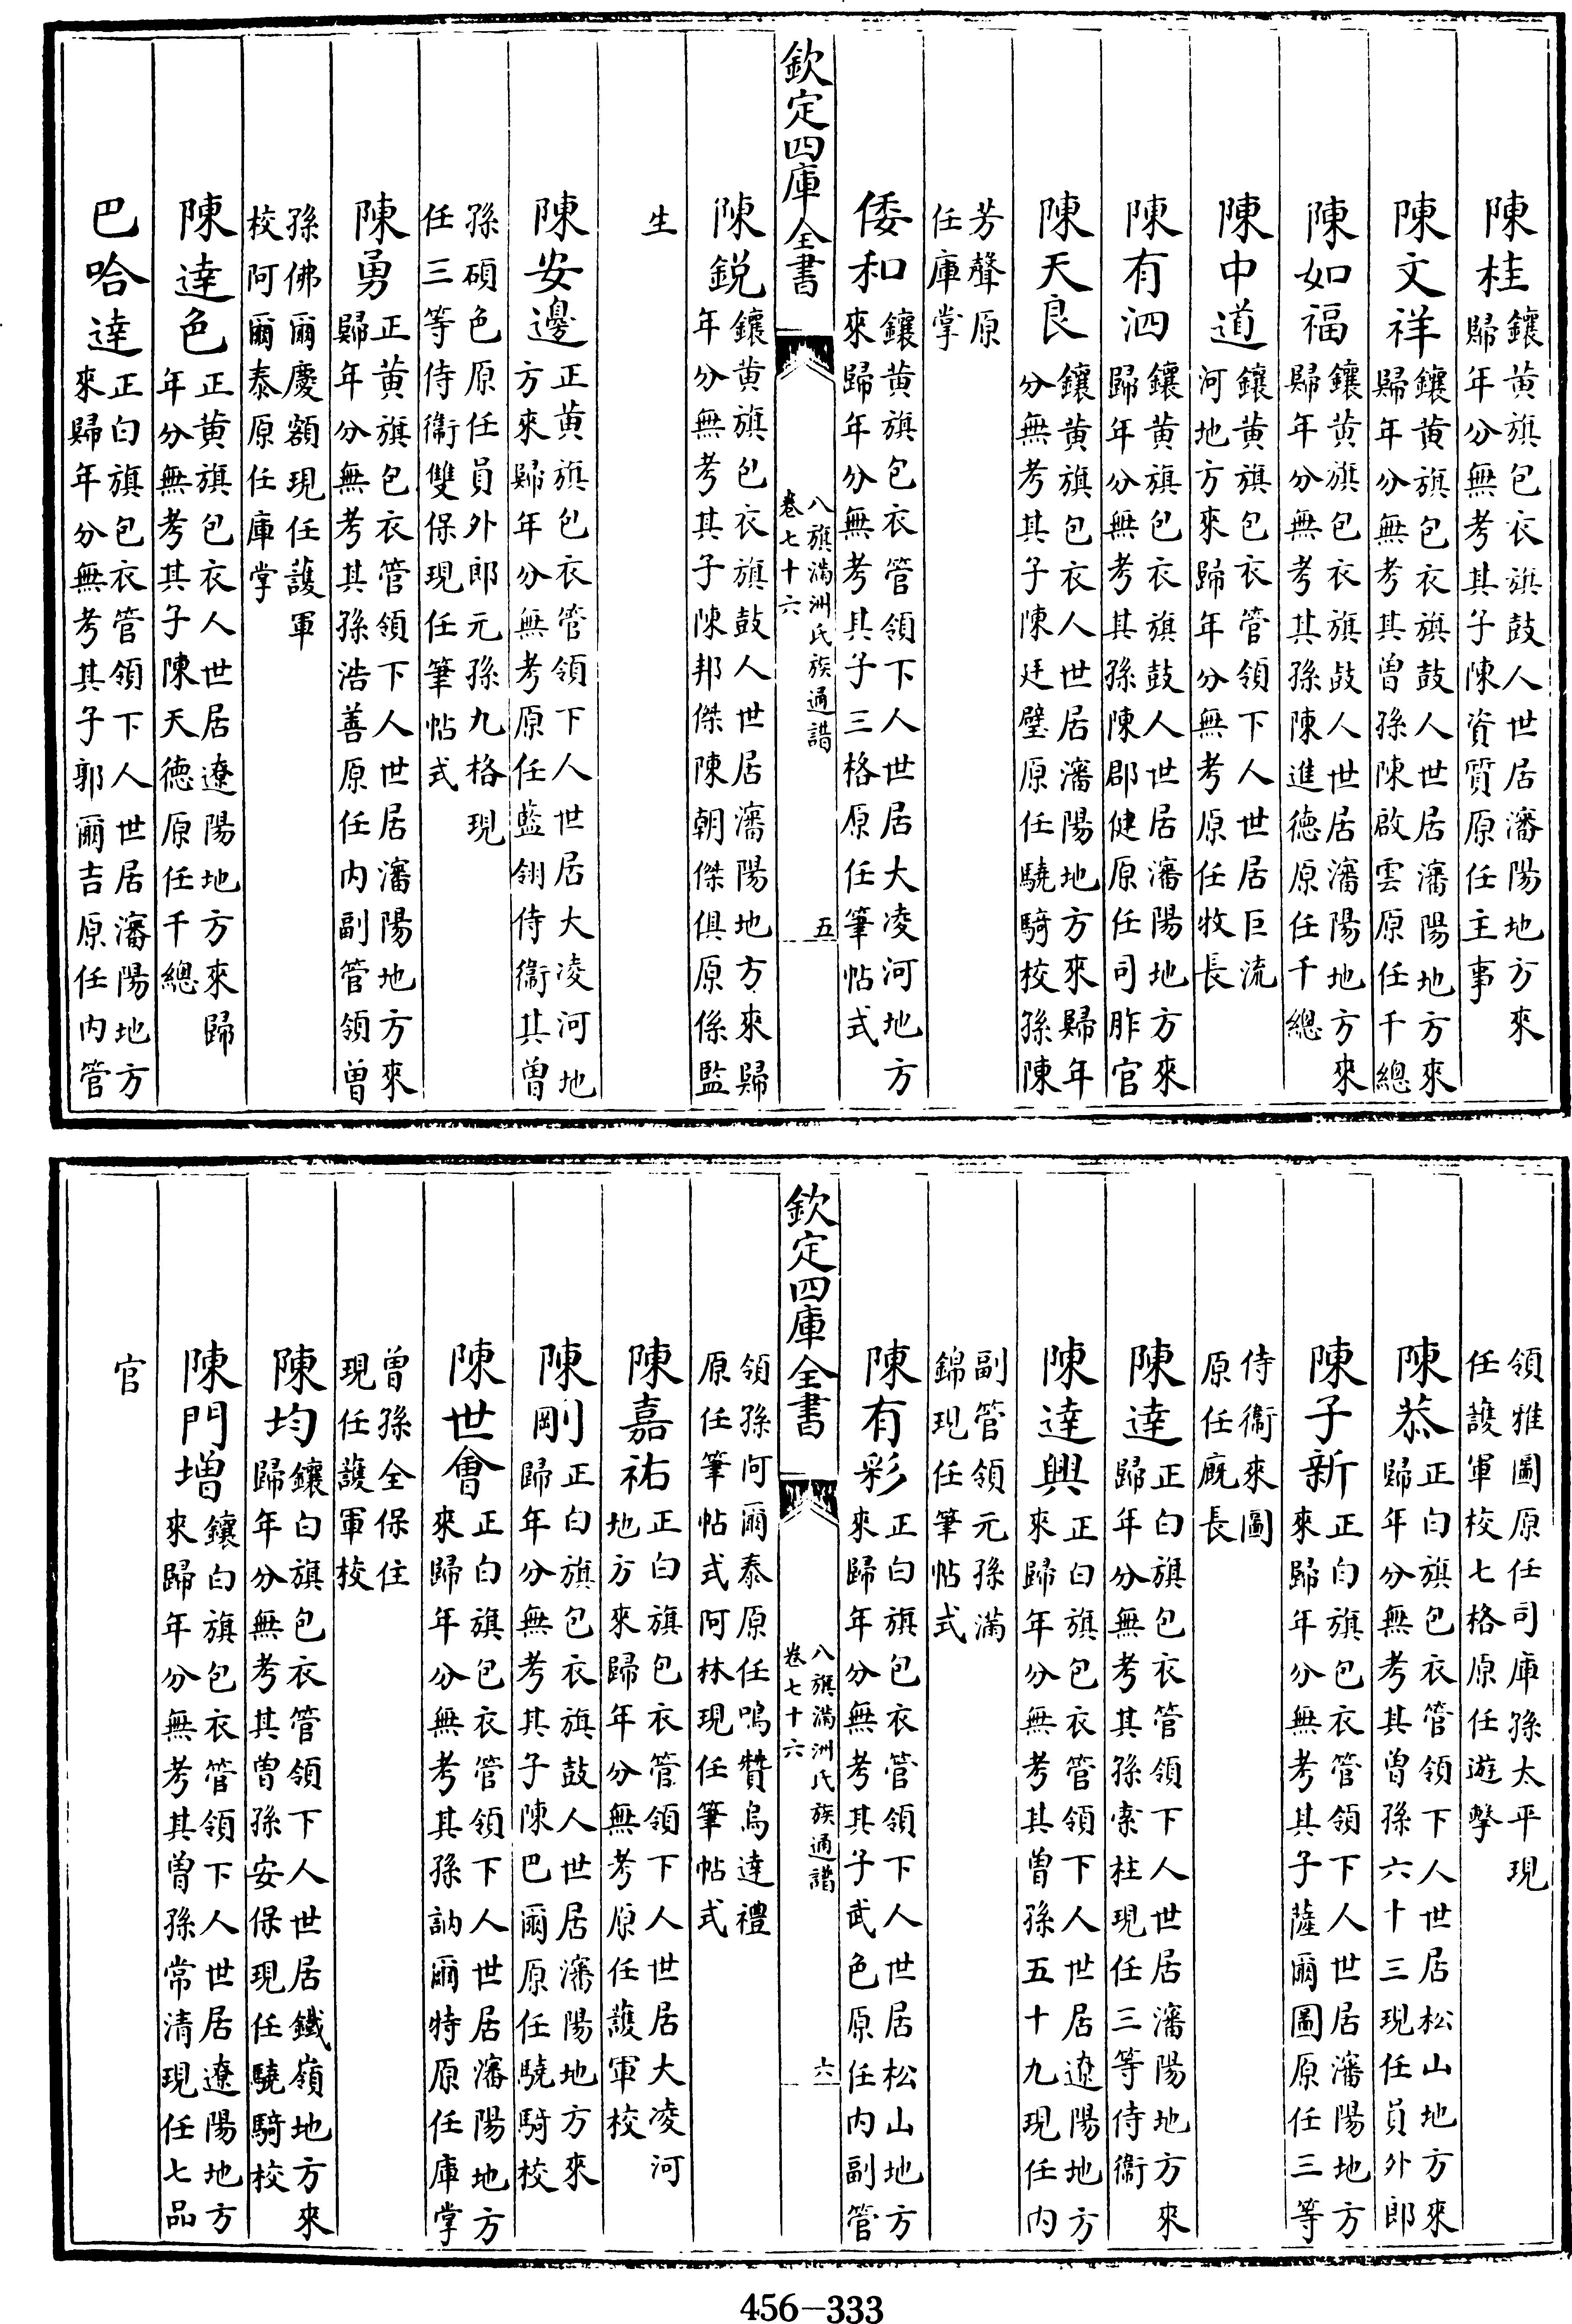 陳桂鑲黄旗包衣旗鼓人世居瀋陽地方來歸年分無考其子陳資質原任主事
陳文祥鑲黄旗包衣旗鼓人世居瀋陽地方來歸年分無考其曽孫陳啟雲原任千總
陳如福鑲黄旗包衣旗鼓人世居瀋陽地方來歸年分無考其孫陳進德原任千總
陳中道鑲黄旗包衣管領下人世居巨流河地方來歸年分無考原任牧長
陳有泗鑲黄旗包衣旗鼓人世居瀋陽地方來歸年分無考其孫陳郡健原任司胙官
陳天良鑲黄旗包衣人世居瀋陽地方來歸年分無考其子陳廷璧原任驍騎校孫陳
芳聲原任庫掌
倭和鑲黄旗包衣管領下人世居大凌河地方來歸年分無考其子三格原任筆帖式
欽定四庫全書 八旗滿洲氏族通譜 卷七十六 五
陳銳鑲黄旗包衣旗鼓人世居瀋陽地方來歸年分無考其子陳邦傑陳朝傑俱原係監
生
陳安邊正黄旗包衣管領下人世居大凌河地方來歸年分無考原任藍翎侍衛其曽
孫碩色原任員外郎元孫九格現任三等侍衛雙保現任筆帖式
陳勇正黄旗包衣管領下人世居瀋陽地方來歸年分無考其孫浩善原任内副管領曽
孫佛爾慶額現任護軍校阿爾泰原任庫掌
陳達色正黄旗包衣人世居遼陽地方來歸年分無考其子陳天德原任千總
巴哈達正白旗包衣管領下人世居瀋陽地方來歸年分無考其子郭爾吉原任内管
領雅圖原任司庫孫太平現任護軍校七格原任遊擊
陳恭正白旗包衣管領下人世居松山地方來歸年分無考其曽孫六十三現任員外郎
陳子新正白旗包衣管領下人世居瀋陽地方來歸年分無考其子薩爾圖原任三等
侍衛來圖原任廐長
陳達正白旗包衣管領下人世居瀋陽地方來歸年分無考其孫索柱現任三等侍衛
陳達興正白旗包衣管領下人世居遼陽地方來歸年分無考其曽孫五十九現任内
副管領元孫滿錦現任筆帖式
陳有彩正白旗包衣管領下人世居松山地方來歸年分無考其子武色原任内副管
欽定四庫全書 八旗滿洲氏族通譜 卷七十六 六
領孫阿爾泰原任鳴贊烏達禮原任筆帖式阿林現任筆帖式
陳嘉祐正白旗包衣管領下人世居大凌河地方來歸年分無考原任護軍校
陳剛正白旗包衣旗鼓人世居瀋陽地方來歸年分無考其子陳巴爾原任驍騎校
陳世會正白旗包衣管領下人世居瀋陽地方來歸年分無考其孫訥爾特原任庫掌
曽孫全保住現任護軍校
陳均鑲白旗包衣管領下人世居鐵嶺地方來歸年分無考其曽孫安保現任驍騎校
陳門增鑲白旗包衣管領下人世居遼陽地方來歸年分無考其曽孫常清現任七品
官
456—333